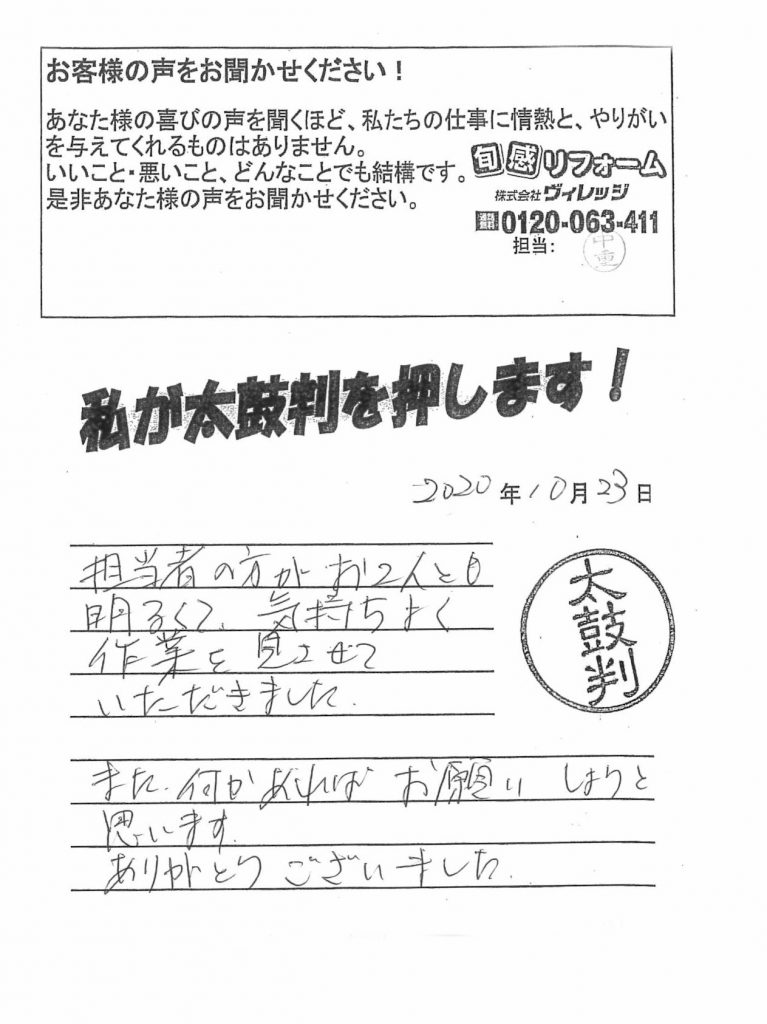 お客様の声をお聞かせください！
あなた様の喜びの声を聞くほど、私たちの仕事に情熱と、やりがい
を与えてくれるものはありません。
いいこと・悪いこと、どんなことでも結構です。
是非あなた様の声をお聞かせください。
旬感リフォーム
株式会社ヴィレッジ
0120-063-411
担当：
中重
私が太鼓判を押します！
2020年10月23日
担当者の方がお2人とも
明るくて、気持ちよく
作業を見させて
いただきました。
太鼓判
また、何かあればお願いしようと
思います。
ありがとうございました。